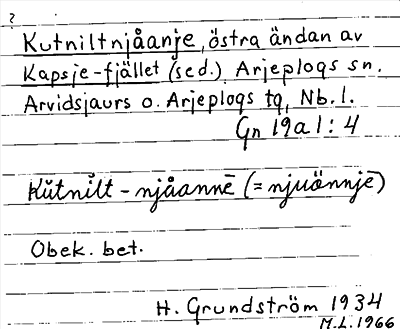 ?
Kutniltnjåanje, östra ändan av
Kapsje-fjället (s.d.) Arjeplogs sn.
Arvidsjaurs o. Arjeplogs tg, Nb. l.
Gn 19a l : 4
Kŭtnĭlt - njåannē (= njuönnjē)
Obek. bet.
H. Grundström 1934
M.L. 1966